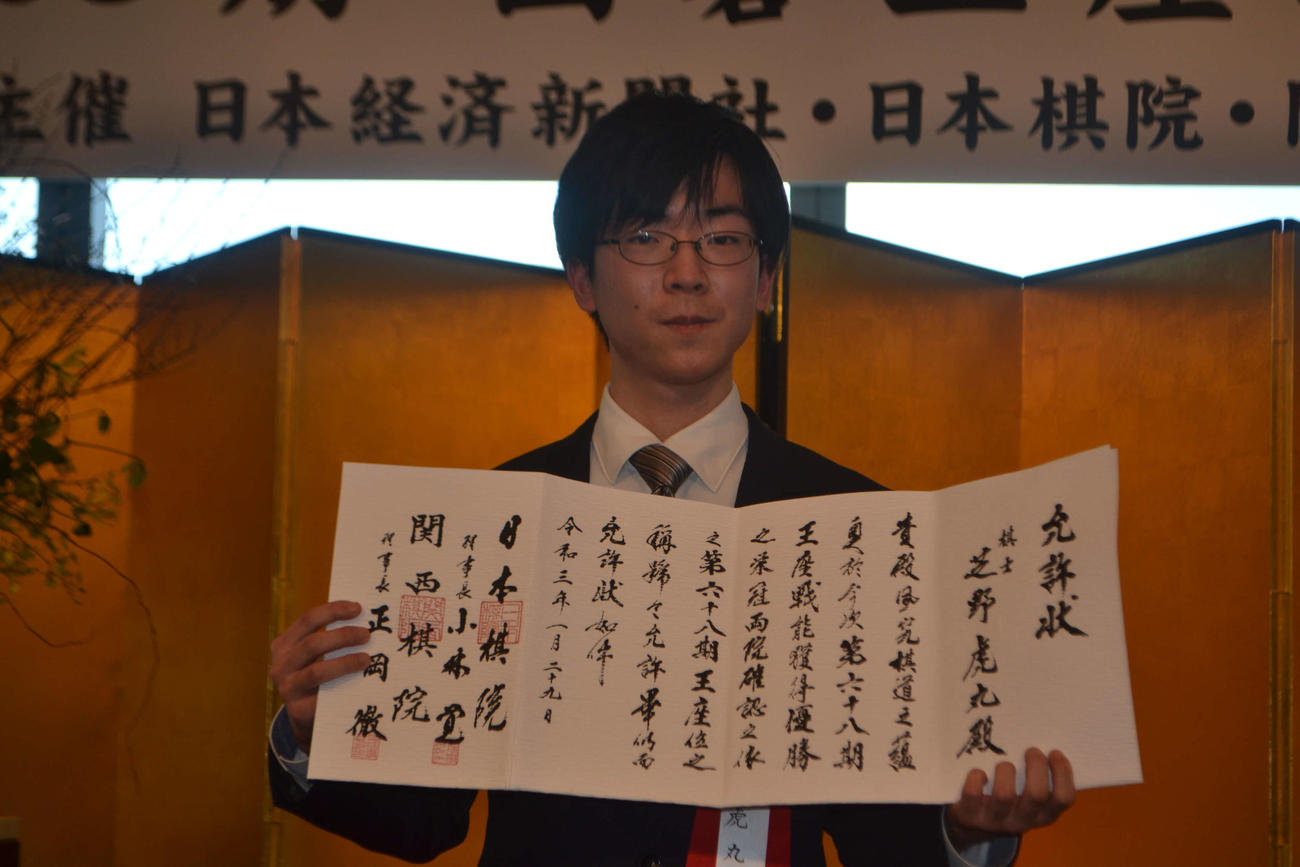 主催 日本経済新聞社・日本棋院・
允許状
棋士 芝野虎丸殿
貴殿夙究棋道之蘊
奥於今次第六十八期
王座戦能獲得優勝
之栄冠両院確認之依
之第六十八期王座位之
称号令允許畢仍而
允許状如件
令和三年一月二十九日
日本棋院
理事長 小林覚
関西棋院
理事長 正岡徹
虎丸